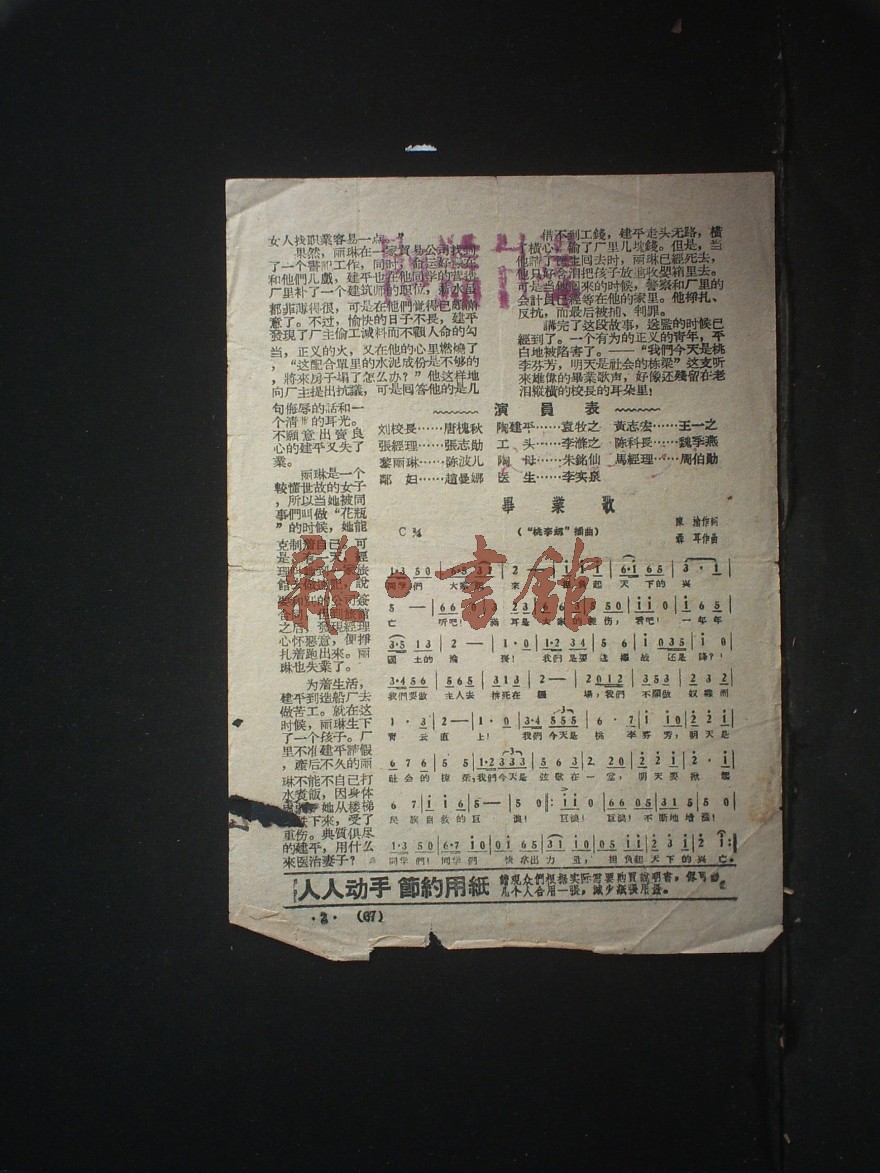 女人找职業容易一点。”
果然，丽琳在一家貿易公司找到
了一个書記工作，同时，命运好象在
和他們儿戲，建平也在他同学的营造
厂里补了一个建筑师的职位，薪水虽
都菲薄得很，可是在他們覚得已頗滿
意了。不过，愉快的日子不長，建平
發現了厂主偷工减料而不顧人命的勾
当，正义的火，又在他的心里燃燒了
，“这配合單里的水泥成份是不够的
，將来房子塌了怎么办？”他这样地
向厂主提出抗議，可是囘答他的是几
句侮辱的話和一
个清脆的耳光。
不願意出賣良
心的建平又失了
業。
丽琳是一个
較懂世故的女子
，所以当她被同
事們叫做“花瓶
”的时候，她能
克制着自己，可
是有一天，經
理
館
之后，發現經理
心怀惡意，便掙
扎着跑出來。丽
琳也失業了。
为着生活，
建平到造船厂去
做苦工。就在这
时候，丽琳生下
了一个孩子。厂
里不准建平請假
，產后不久的丽
琳不能不自己打
水煮飯，因身体
她从楼梯
下來，受了
重伤。典質俱尽
的建平，用什么
來医治妻子？
借不到工錢，建平走头无路，橫
了橫心，偷了厂里几塊錢。但是，当
他請了医生囘去时，丽琳已經死去，
他只好含泪把孩子放進收嬰箱里去。
可是当他囘來的时候，警察和厂里的
会計員已經等在他的家里。他掙扎、
反抗，而最后被捕、判罪。
講完了这段故事，送監的时候已
經到了。一个有为的正义的青年，平
白地被陷害了。——“我們今天是桃
李芬芳，明天是社会的栋梁”这支听
來雄偉的畢業歌声，好像还殘留在老
泪縱橫的校長的耳朵里！
演員表
刘校長……唐槐秋　陶建平……袁牧之　黃志宏……王一之
張經理……張志勛　工　头……李滌之　陈科長……魏季燕
黎丽琳……陈波儿　陶　母……朱銘仙　馬經理……周伯勛
鄰　妇……趙曼娜　医　生……李实泉
畢業歌
C 2/4
（“桃李劫”插曲）
陳瑜作詞
聶耳作曲
同学們！大家起來，担負起天下的兴
亡！听吧！滿耳是大家的嗟伤，看吧！一年年
國土的淪喪！我們是要选擇战还是降？！
我們要做主人去拚死在疆場，我們不願做奴隸而
青云直上！我們今天是桃李芬芳，明天是
社会的棟梁，我們今天是弦歌在一堂，明天要掀起
民族自救的巨浪！巨浪！巨浪！不断地增漲！
同学們！同学們！快拿出力量，担負起天下的兴亡。
人人动手 節約用紙
請观众們根据实际需要购買說明書，你可
几个人合用一張，减少紙張用量。
·2·　(67)
雜·書館